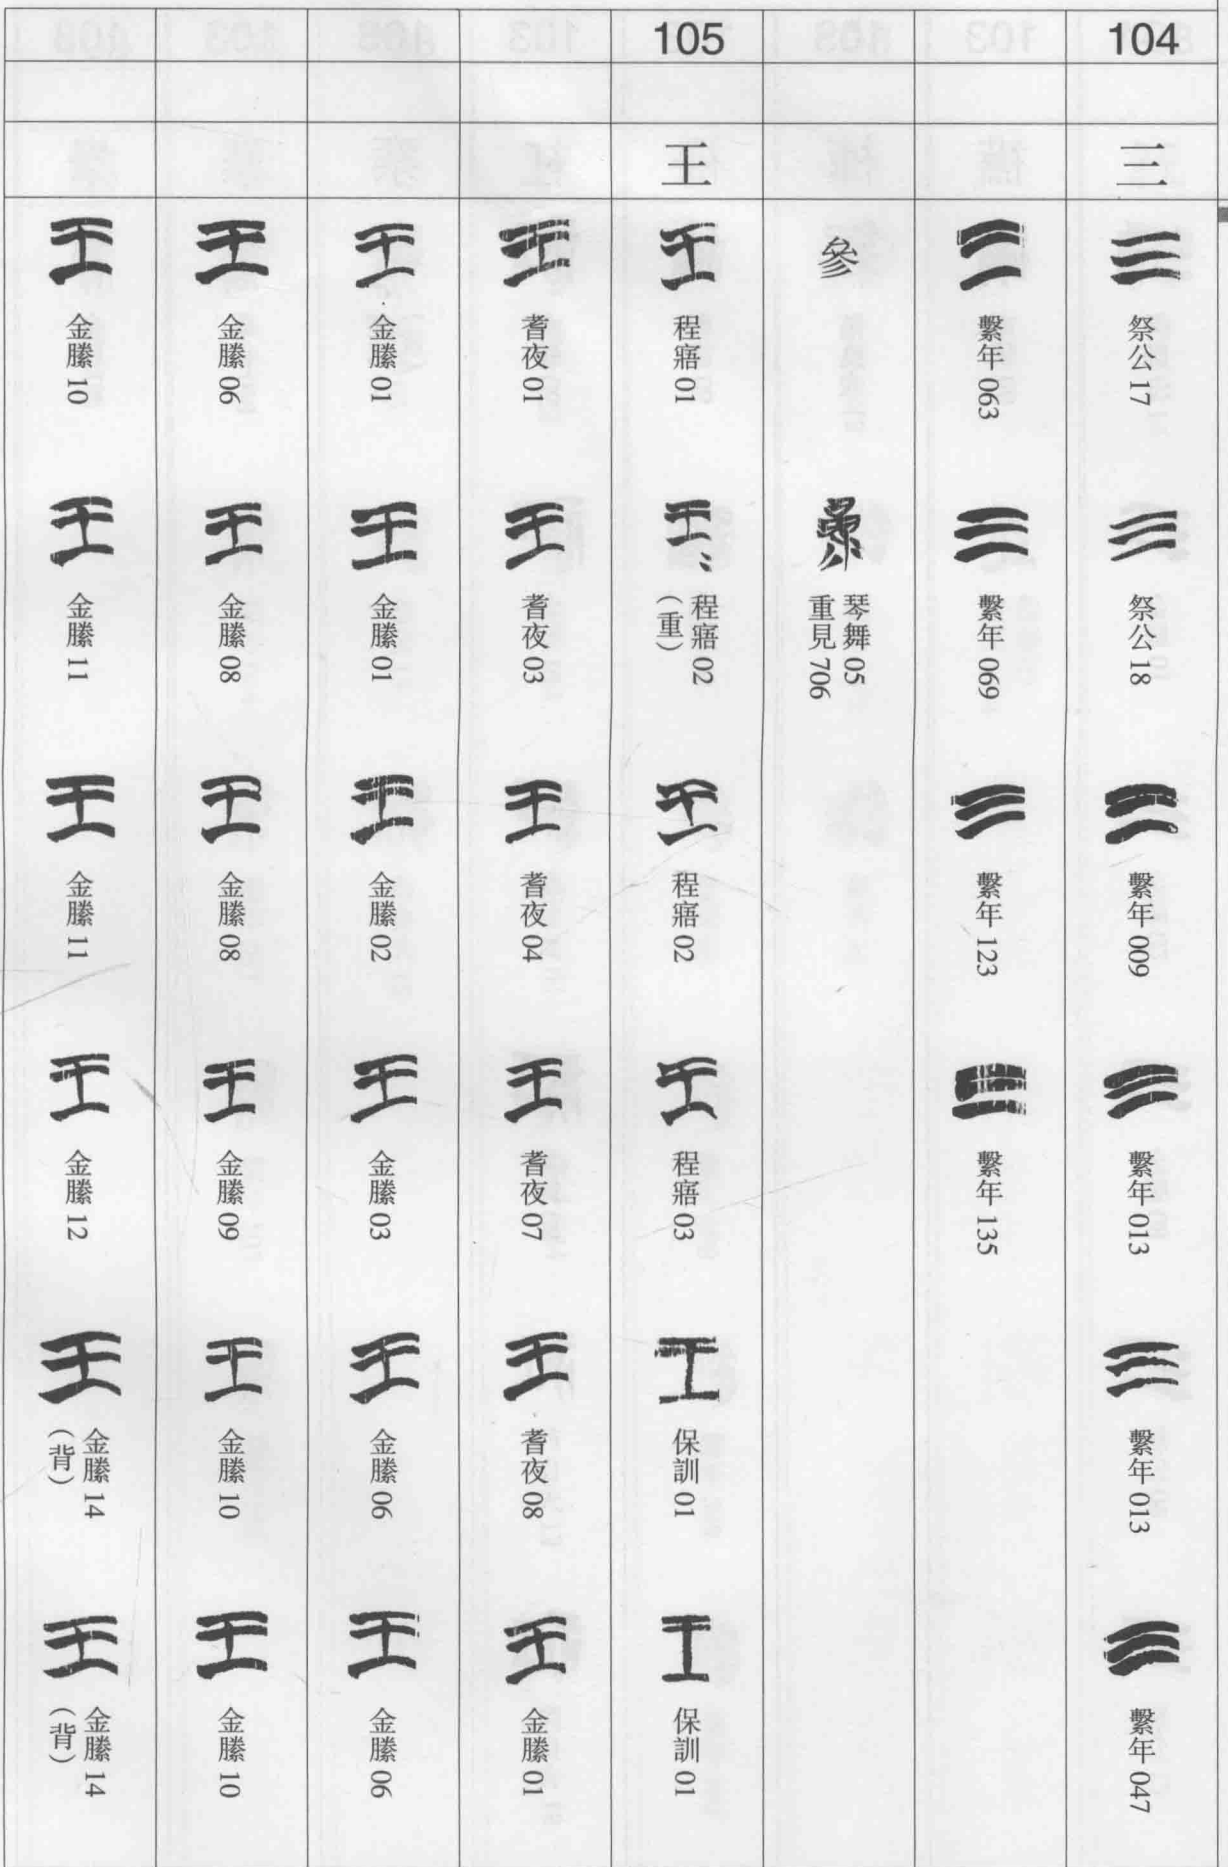 104
三
祭公 17
祭公 18
繫年 009
繫年 013
繫年 013
繫年 047
繫年 063
繫年 069
繫年 123
繫年 135
參
琴舞 05
重見 706
105
王
程寤 01
程寤 02
（重）
程寤 02
程寤 03
保訓 01
保訓 01
耆夜 01
耆夜 03
耆夜 04
耆夜 07
耆夜 08
金縢 01
金縢 01
金縢 01
金縢 02
金縢 03
金縢 06
金縢 06
金縢 06
金縢 08
金縢 08
金縢 09
金縢 10
金縢 10
金縢 10
金縢 11
金縢 11
金縢 12
金縢 14
（背）
金縢 14
（背）